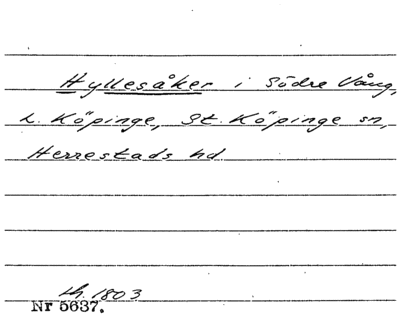 Hyllesåker i Södre Vång,
L. Köpinge, St. Köpinge sn,
Herrestads hd
lh. 1803
Nr 5637.